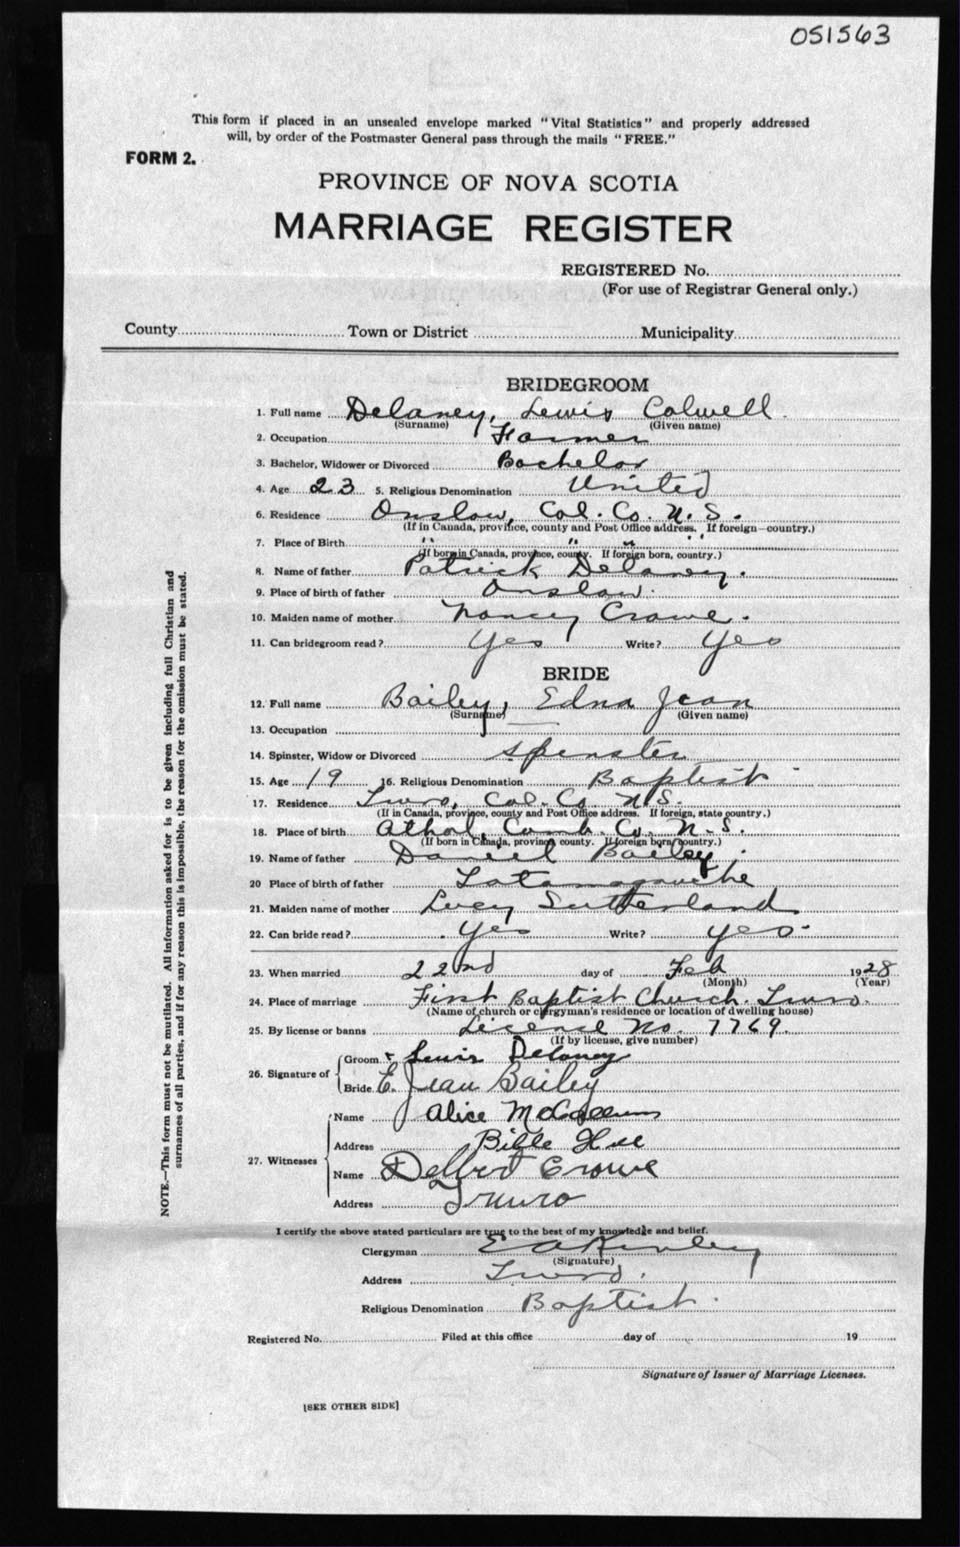 051563
This form if placed in an unsealed envelope marked "Vital Statistics" and properly addressed
will, by order of the Postmaster General pass through the mails "FREE."
FORM 2.
PROVINCE OF NOVA SCOTIA
MARRIAGE REGISTER
REGISTERED No.
(For use of Registrar General only.)
County Town or District Municipality
BRIDEGROOM
1. Full name Delaney, Lewis Colwell
(Surname) (Given name)
2. Occupation Farmer
3. Bachelor, Widower or Divorced Bachelor
4. Age 23 5. Religious Denomination United
6. Residence Onslow, Col. Co. N.S.
(If in Canada, province, county and Post Office address. If foreign—country.)
7. Place of Birth " " " "
(If born in Canada, province, county. If foreign born, country.)
8. Name of father Patrick Delaney.
9. Place of birth of father Onslow.
10. Maiden name of mother Nancy Crowe.
11. Can bridegroom read? Yes Write? Yes
BRIDE
12. Full name Bailey, Edna Jean
(Surname) (Given name)
13. Occupation
14. Spinster, Widow or Divorced Spinster
15. Age 19 16. Religious Denomination Baptist
17. Residence Truro, Col. Co. N.S.
(If in Canada, province, county and Post Office address. If foreign, state country.)
18. Place of birth Athol, Cumb. Co. N.S.
(If born in Canada, province county. If foreign born country.)
19. Name of father Daniel Bailey.
20 Place of birth of father Tatamagouche
21. Maiden name of mother Lucy Sutherland
22. Can bride read? Yes Write? Yes.
23. When married 22nd day of Feb 1928
(Month) (Year)
24. Place of marriage First Baptist Church. Truro.
(Name of church or clergyman's residence or location of dwelling house)
25. By license or banns License No. 7769.
(If by license, give number)
26. Signature of
Groom Lewis Delaney
Bride E. Jean Bailey
27. Witnesses
Name Alice McCallum
Address Bible Hill
Name Delbert Crowe
Address Truro
I certify the above stated particulars are true to the best of my knowledge and belief.
Clergyman E A Kinley
(Signature)
Address Truro.
Religious Denomination Baptist.
Registered No. Filed at this office day of 19
Signature of Issuer of Marriage Licenses.
[SEE OTHER SIDE]
NOTE.—This form must not be mutilated. All information asked for is to be given including full Christian and
surnames of all parties, and if for any reason this is impossible, the reason for the omission must be stated.